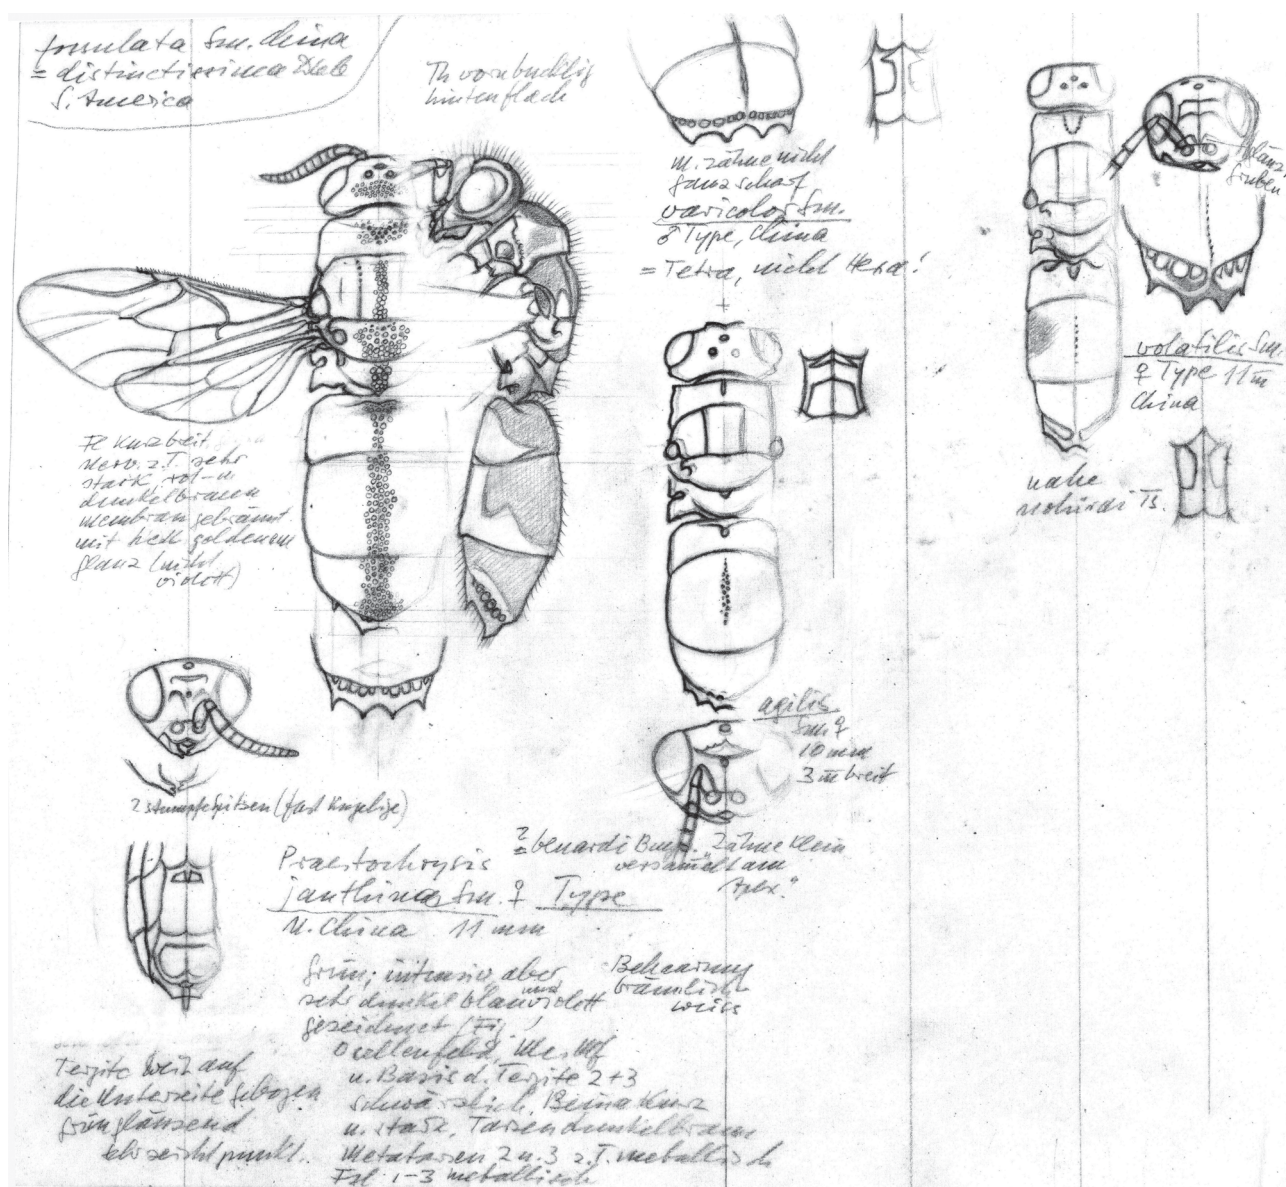 fossulata Sm. China
= distinctissima Dhlb
S. America
Th vorn bucklig
hinten flach
m. Zähne nicht
ganz scharf
varicolor Sm.
♂ Type, China
= Tetra, nicht Hexa!
Gruben
volatilis Sm.
♀ Type 11 m
China
nahe
Ts.
Fl kurz breit
Nerv. z.T. sehr
stark, rot- u.
dunkelbraun
membran gebräunt
mit hell goldenem
glanz (nicht
violett)
agilis
Sm. ♀
10 mm
3 m breit
2 stumpfe Spitzen (fast kugelige)
? = benardi Zähne klein
am
Apex"
Praestochrysis
janthina Sm. ♀ Type
N. China 11 mm
grün; intensiv, aber
sehr dunkel blau und violett
gezeichnet (Fig!
Ocellenfeld,
u. Basis d. Tergite 2+3
schwärzlich. Beine kurz
u. stark, Tarsen dunkelbraun
Metatarsen 2 u. 3 z.T. metallisch
1-3 metallisch
Behaarung
bräunlich
weiss
Tergite weit auf
die Unterseite gebogen
grünglänzend
punkt.